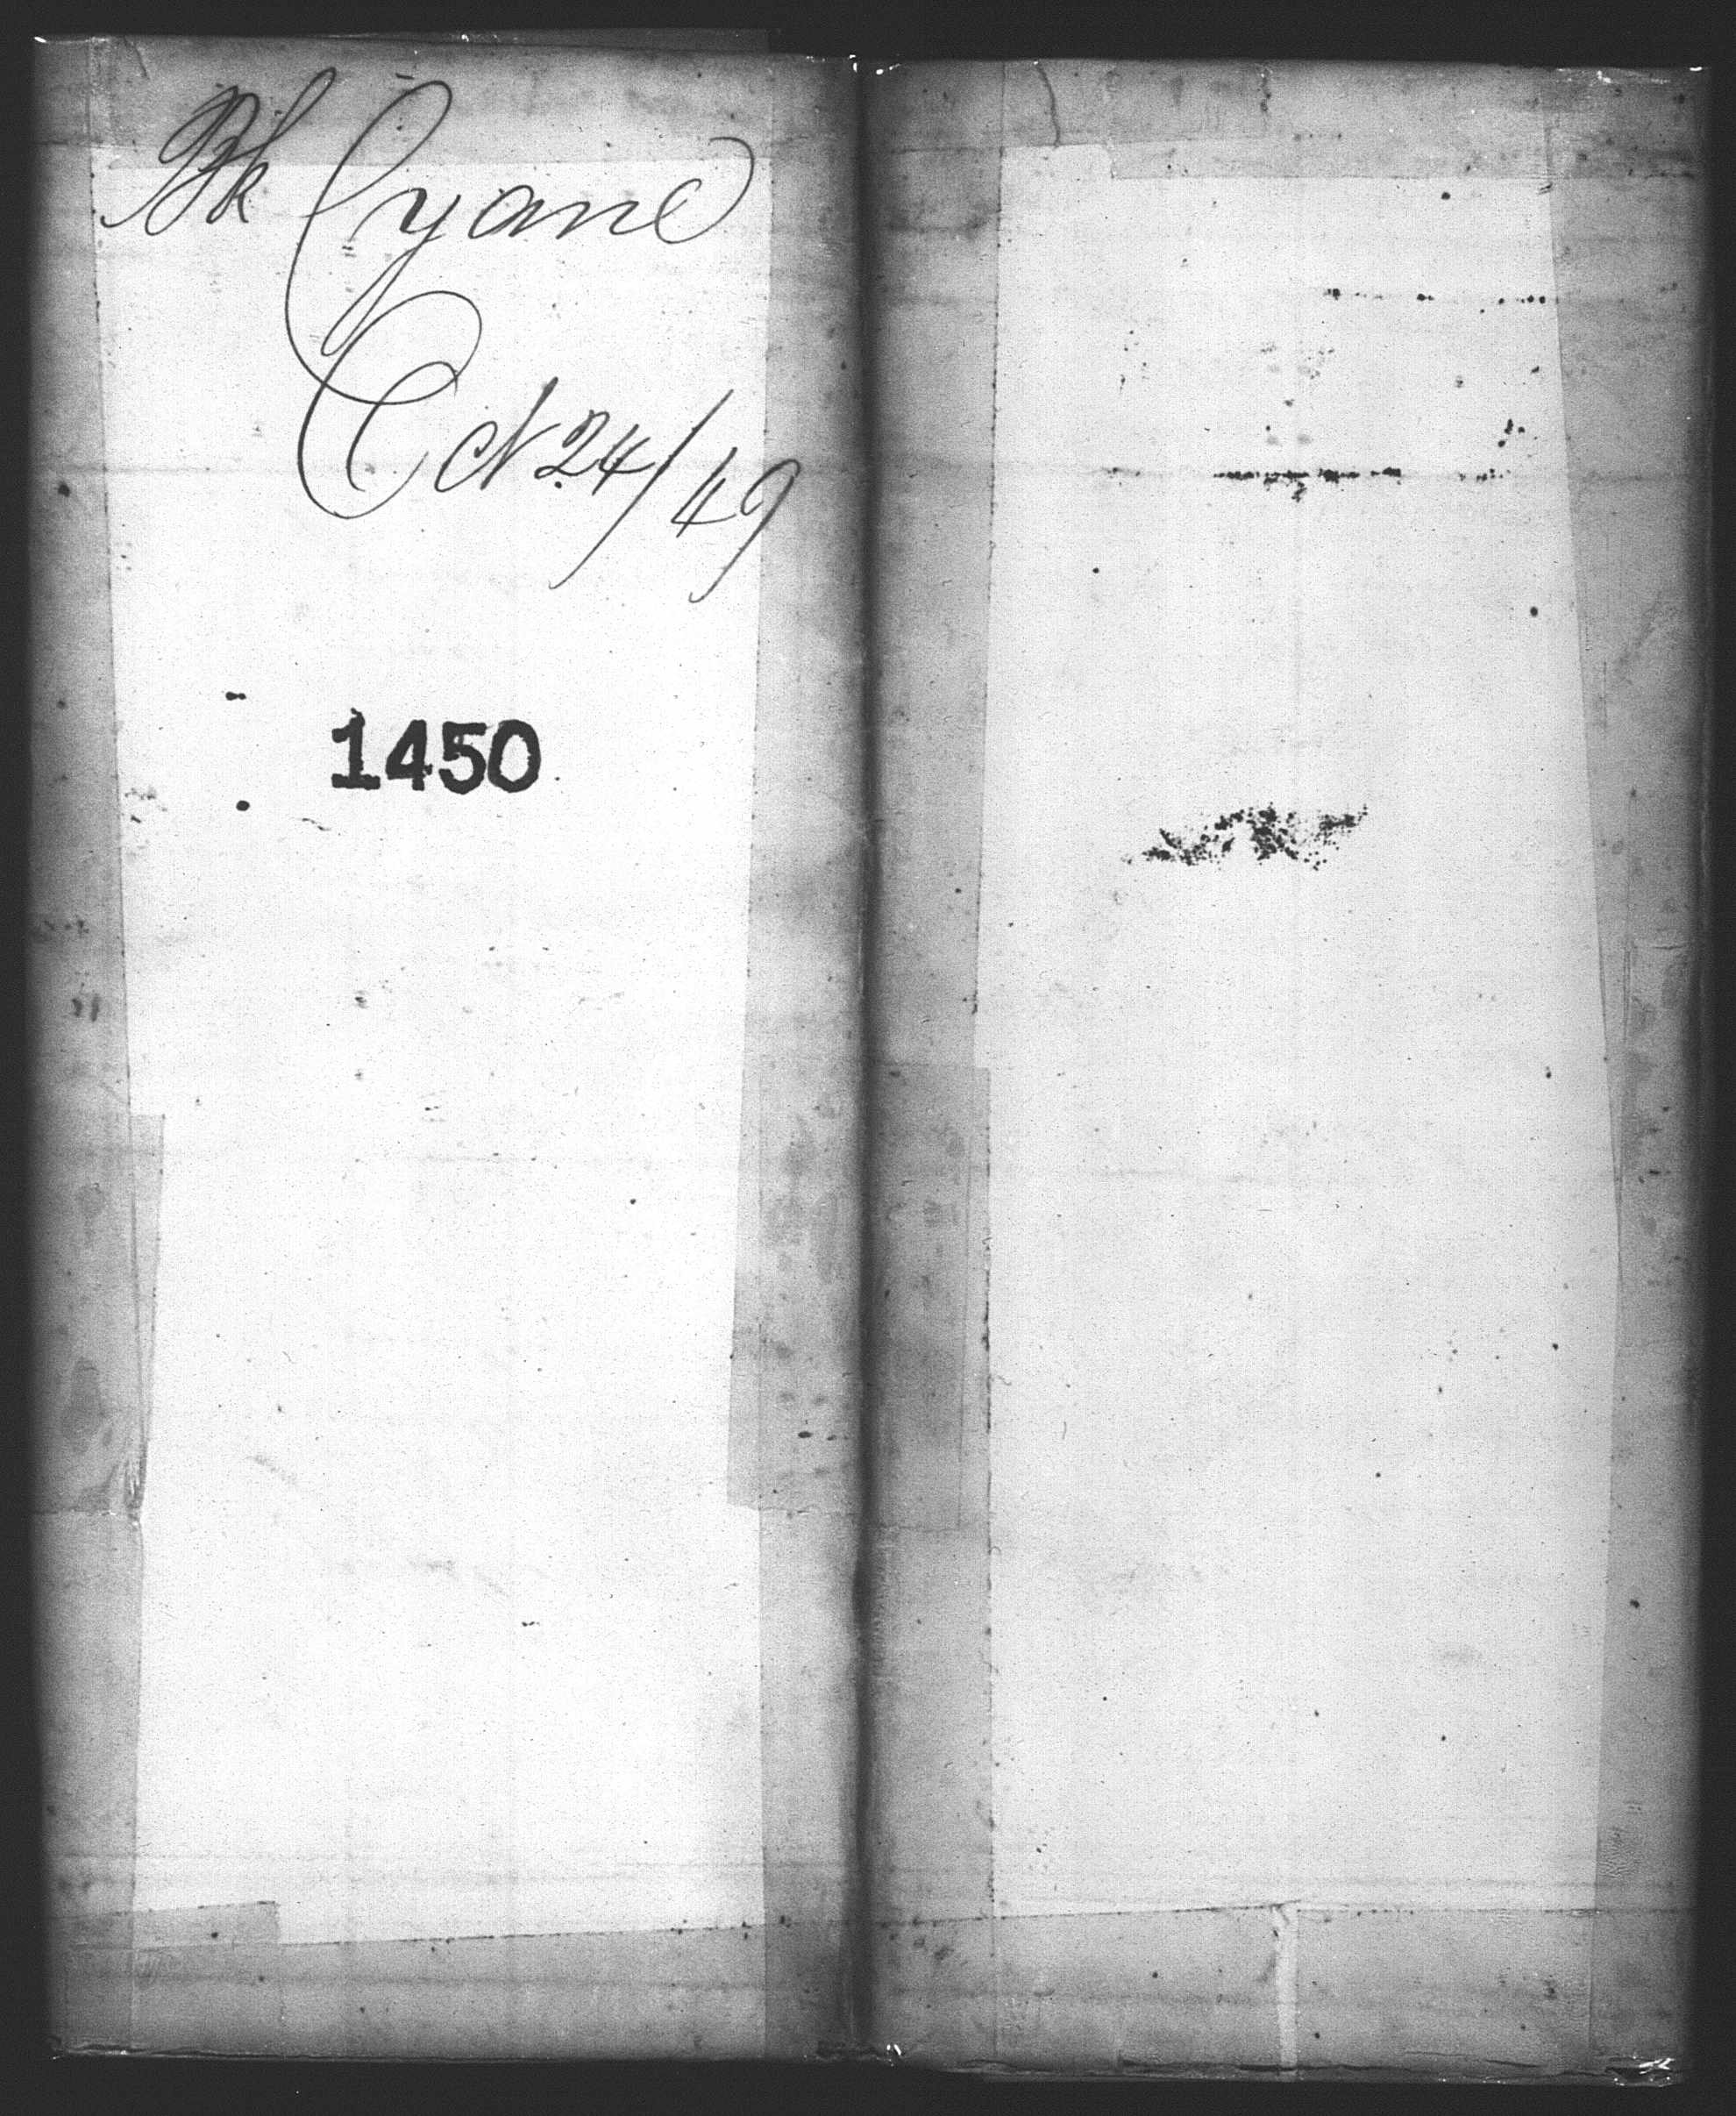 Bk Cyane
Oct 24/49
1450